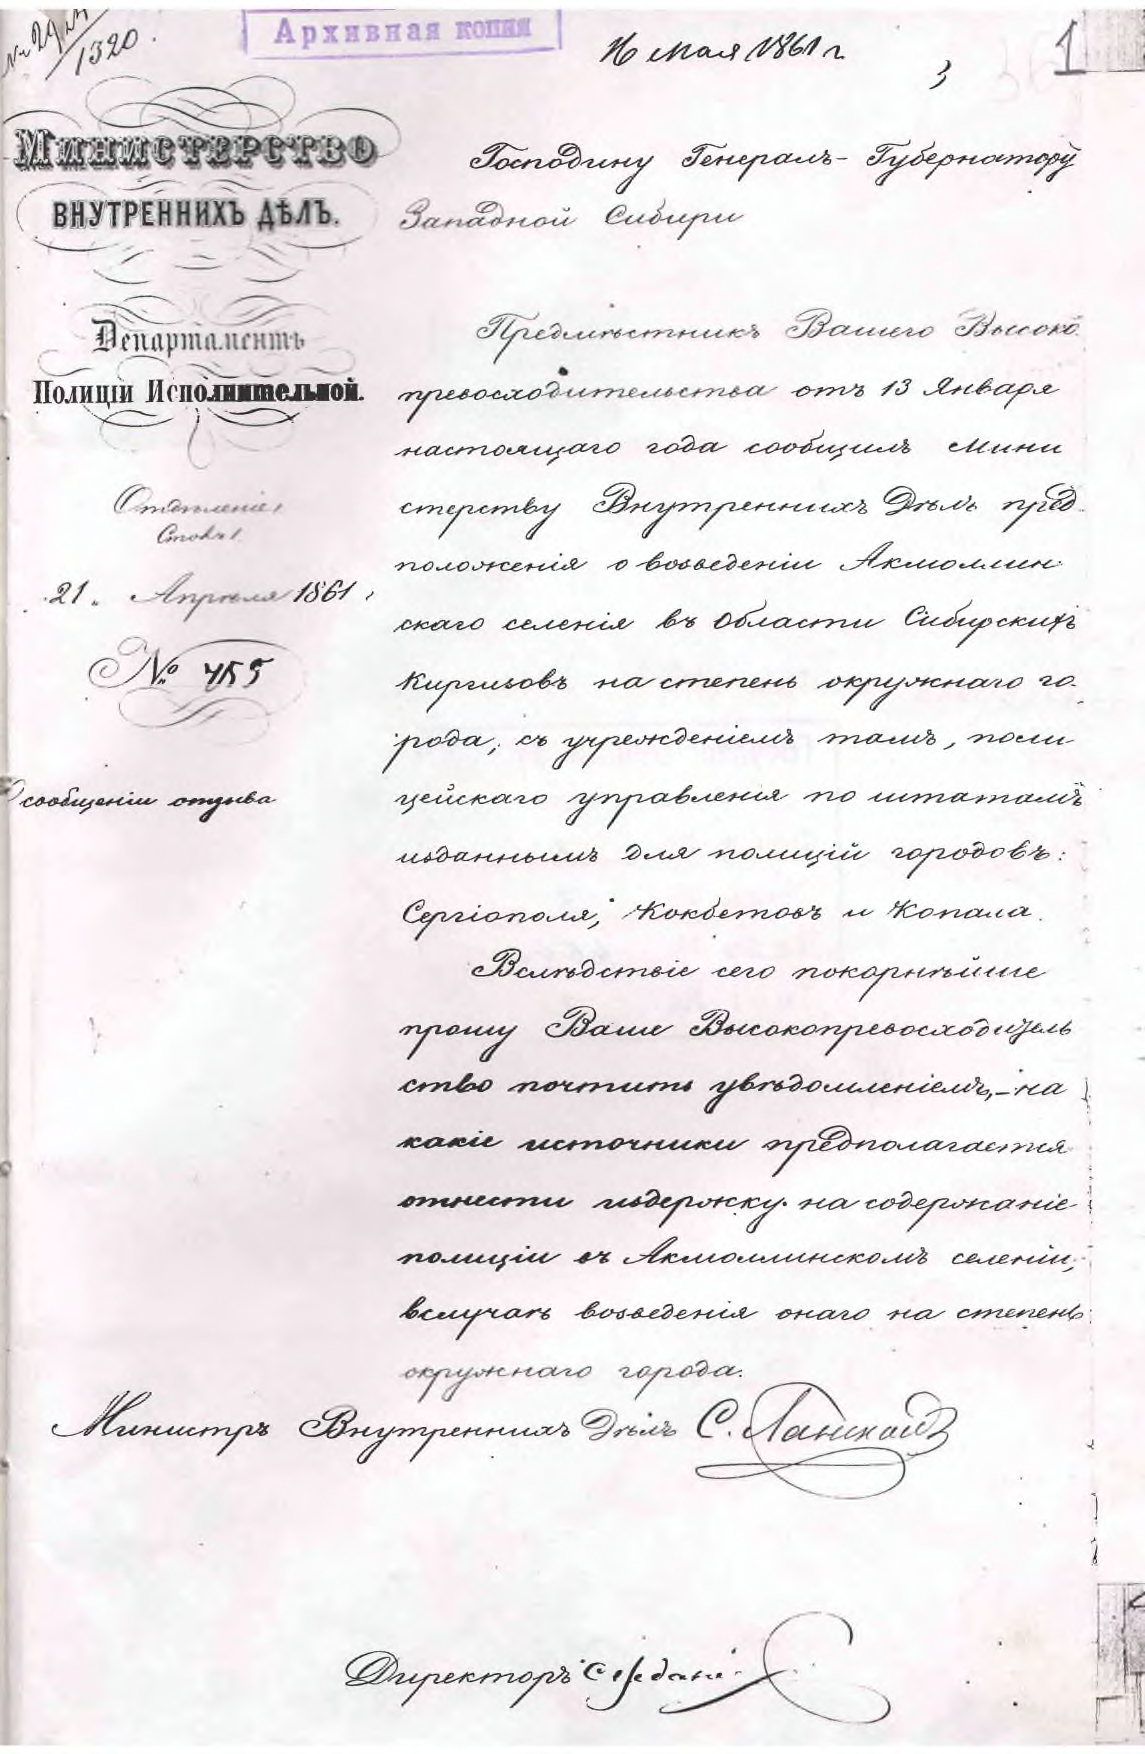 Архивная копия
16 мая 1861 г.
1
1320.
Министерство
внутреннихъ дѣлъ.
Департаментъ
Полиціи Исполнительной.
Отдѣленіе 1
Столъ 1
21 Апрѣля 1861
№ 455
О сообщеніи отзыва
Господину Генералъ-Губернатору
Западной Сибири
Предмѣстникъ Вашего Высоко
превосходительства отъ 13 Января
настоящаго года сообщилъ Мини
стерству Внутреннихъ Дѣлъ пред-
положенія о возведеніи Акмоллин-
скаго селенія въ Области Сибирскихъ
Киргизовъ на степень окружнаго го-
рода, съ учрежденіемъ тамъ, поли
цейскаго управленія по штатамъ
изданнымъ для полицій городовъ:
Сергіополя, Кокбетовъ и Копала.
Вслѣдствіе сего покорнѣйше
прошу Ваше Высокопревосходитель
ство почтить увѣдомленіемъ, - на
какіе источники предполагается
отнести издержку на содержаніе
полиціи въ Акмоллинскомъ селеніи,
вслучаѣ возведенія онаго на степень
окружнаго города.
Министръ Внутреннихъ Дѣлъ С. Ланской
Директоръ